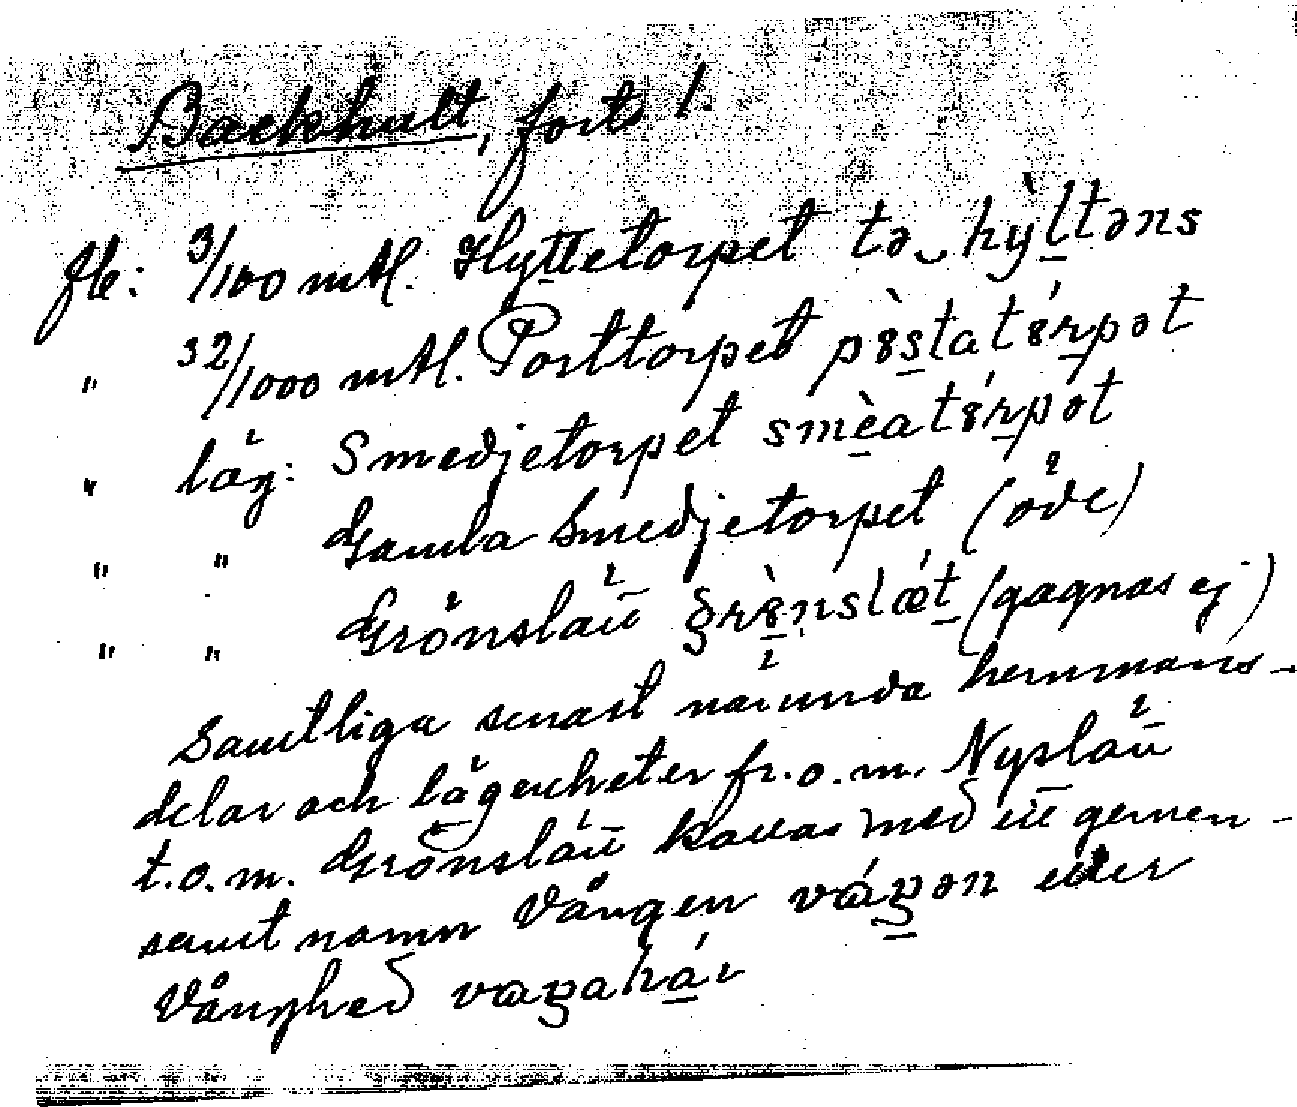 Backhult, forts!
fk: 3/100 mtl. Hyttetorpet tə‿hỳltəns
" 32/1000 mtl. Posttorpet
" läg: Smedjetorpet smèatórpət
" " Gamla Smedjetorpet (öde)
" " Grönslätt (gagnas ej)
Samtliga senast nämnda hemmans-
delar och lägenheter fr.o.m. Nyslätt
t.o.m. Grönslätt kallas med ett gemen-
samt namn Vången eller
Vånghed